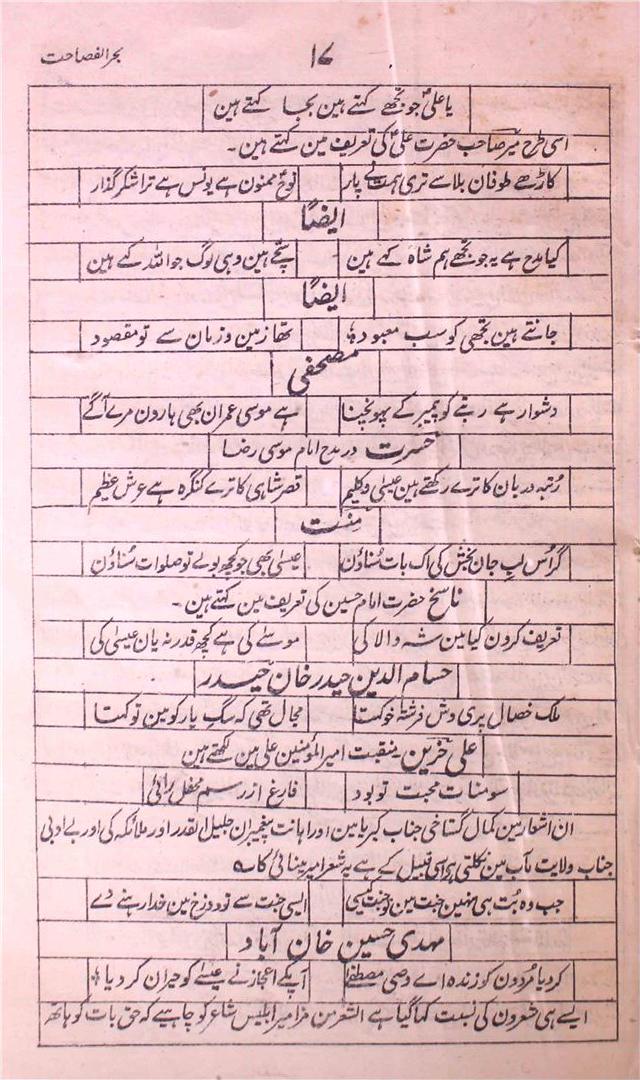 بحر الفصاحت
۱۷
یا علیؑ جو تجھے کہتے ہین بجا کہتے ہین
اسی طرح میر صاحب حضرت علیؑ کی تعریف مین کہتے ہین۔
کاڑھے طوفان بلا سے تری ہمت نے پار نوحؑ ممنون ہے یونس ہے ترا شکر گذار
ایضاً
کیا مدح ہے یہ جو تجھے ہم شاہ کہے ہین سچے ہین وہی لوگ جو اللہ کہے ہین
ایضاً
جانتے ہین تجھی کو سب معبود تھا زمین و زمان سے تو مقصود
مصحفی
دشوار ہے رتبے کو پیمبر کے پہونچنا ہے موسی عمران بھی ہارون مرے آگے
حسرت در مدح امام موسی رضا
رُتبہ دربان کا ترے رکھتے ہین عیسیٰ و کلیم قصر شاہی کا ترے کنگرہ ہے عرش عظیم
منت
گر اُس لبِ جان بخش کی اک بات سُناؤن عیسیٰ بھی جو کچھ بولے تو صلوات سُناؤن
ناسخ حضرت امام حسین کی تعریف مین کہتے ہین۔
تعریف کرون کیا مین شہ والا کی موسے کی ہے کچھ قدر نہ یان عیسیٰ کی
حسام الدین حیدر خان حیدر
ملک خصال پری وش فرشتہ خو کہتا مجال تھی کہ سگِ یار کو مین تو کہتا
علی حزین منقبت امیر المؤمنین علی مین لکھتے ہین
سومنات محبت تو بود فارغ از رسم محفل رائی
ان اشعار مین کمال گستاخی جناب کبریا مین اور اہانت پیغمبران جلیل القدر اور ملائکہ کی اور بے ادبی
جناب ولایت مآب مین نکلتی ہے اسی قبیل کے ہے یہ شعر امیر مینائی کا
جب وہ بُت ہی نہین جنت مین تو جنت کیسی ایسی جنت سے تو دوزخ مین خدا رہنے دے
مہدی حسین خان آباد
کر دیا مُردون کو زندہ اے وصی مصطفیٰ آپکے اعجاز نے عیسے کو حیران کر دیا
ایسے ہی شعرون کی نسبت کہا گیا ہے الشعر من مزامیر ابلیس شاعر کو چاہیے کہ حق بات کو ہاتھ